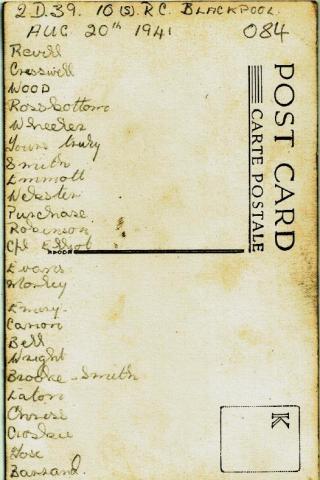 2.D.39. 10(S).R.C. BLACKPOOL.
AUG 20th 1941 084
Revill
Cresswell
WOOD
Rossbottom
Wheeler
Yours truly
Smith
Emmott
Webster
Purchase.
Robinson
Cpl Elliot
Evans
Morley
Emery.
Cannon
Bell
Wright
Brooke-Smith
Eaton
Croskie
Barrand.
POST CARD
CARTE POSTALE
K